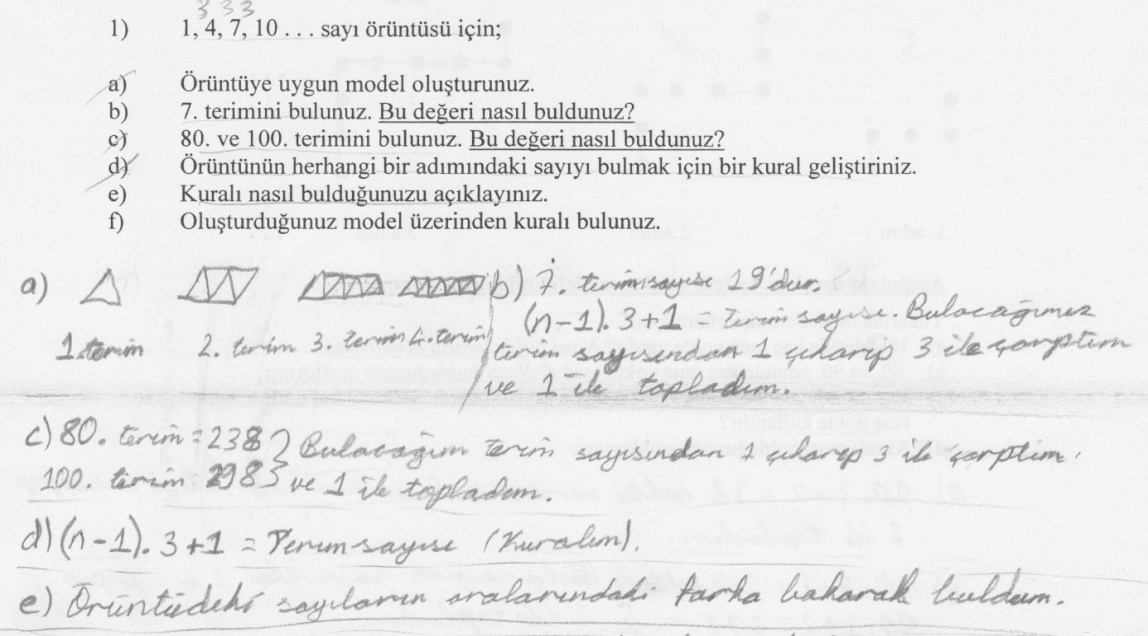 3 3 3
1) 1, 4, 7, 10 . . . sayı örüntüsü için;
a) Örüntüye uygun model oluşturunuz.
b) 7. terimini bulunuz. Bu değeri nasıl buldunuz?
c) 80. ve 100. terimini bulunuz. Bu değeri nasıl buldunuz?
d) Örüntünün herhangi bir adımındaki sayıyı bulmak için bir kural geliştiriniz.
e) Kuralı nasıl bulduğunuzu açıklayınız.
f) Oluşturduğunuz model üzerinden kuralı bulunuz.
a)
1. terim 2. terim 3. terim 4. terim
b) 7. terim sayısı 19'dur.
(n-1). 3+1 = terim sayısı. Bulacağımız
terim sayısından 1 çıkarıp 3 ile çarptım
ve 1 ile topladım.
c) 80. terim = 238 } Bulacağım terim sayısından 1 çıkarıp 3 ile çarptım
100. terim 298 } ve 1 ile topladım.
d) (n-1). 3+1 = Terim sayısı (Kuralım).
e) Örüntüdeki sayıların aralarındaki farka bakarak buldum.